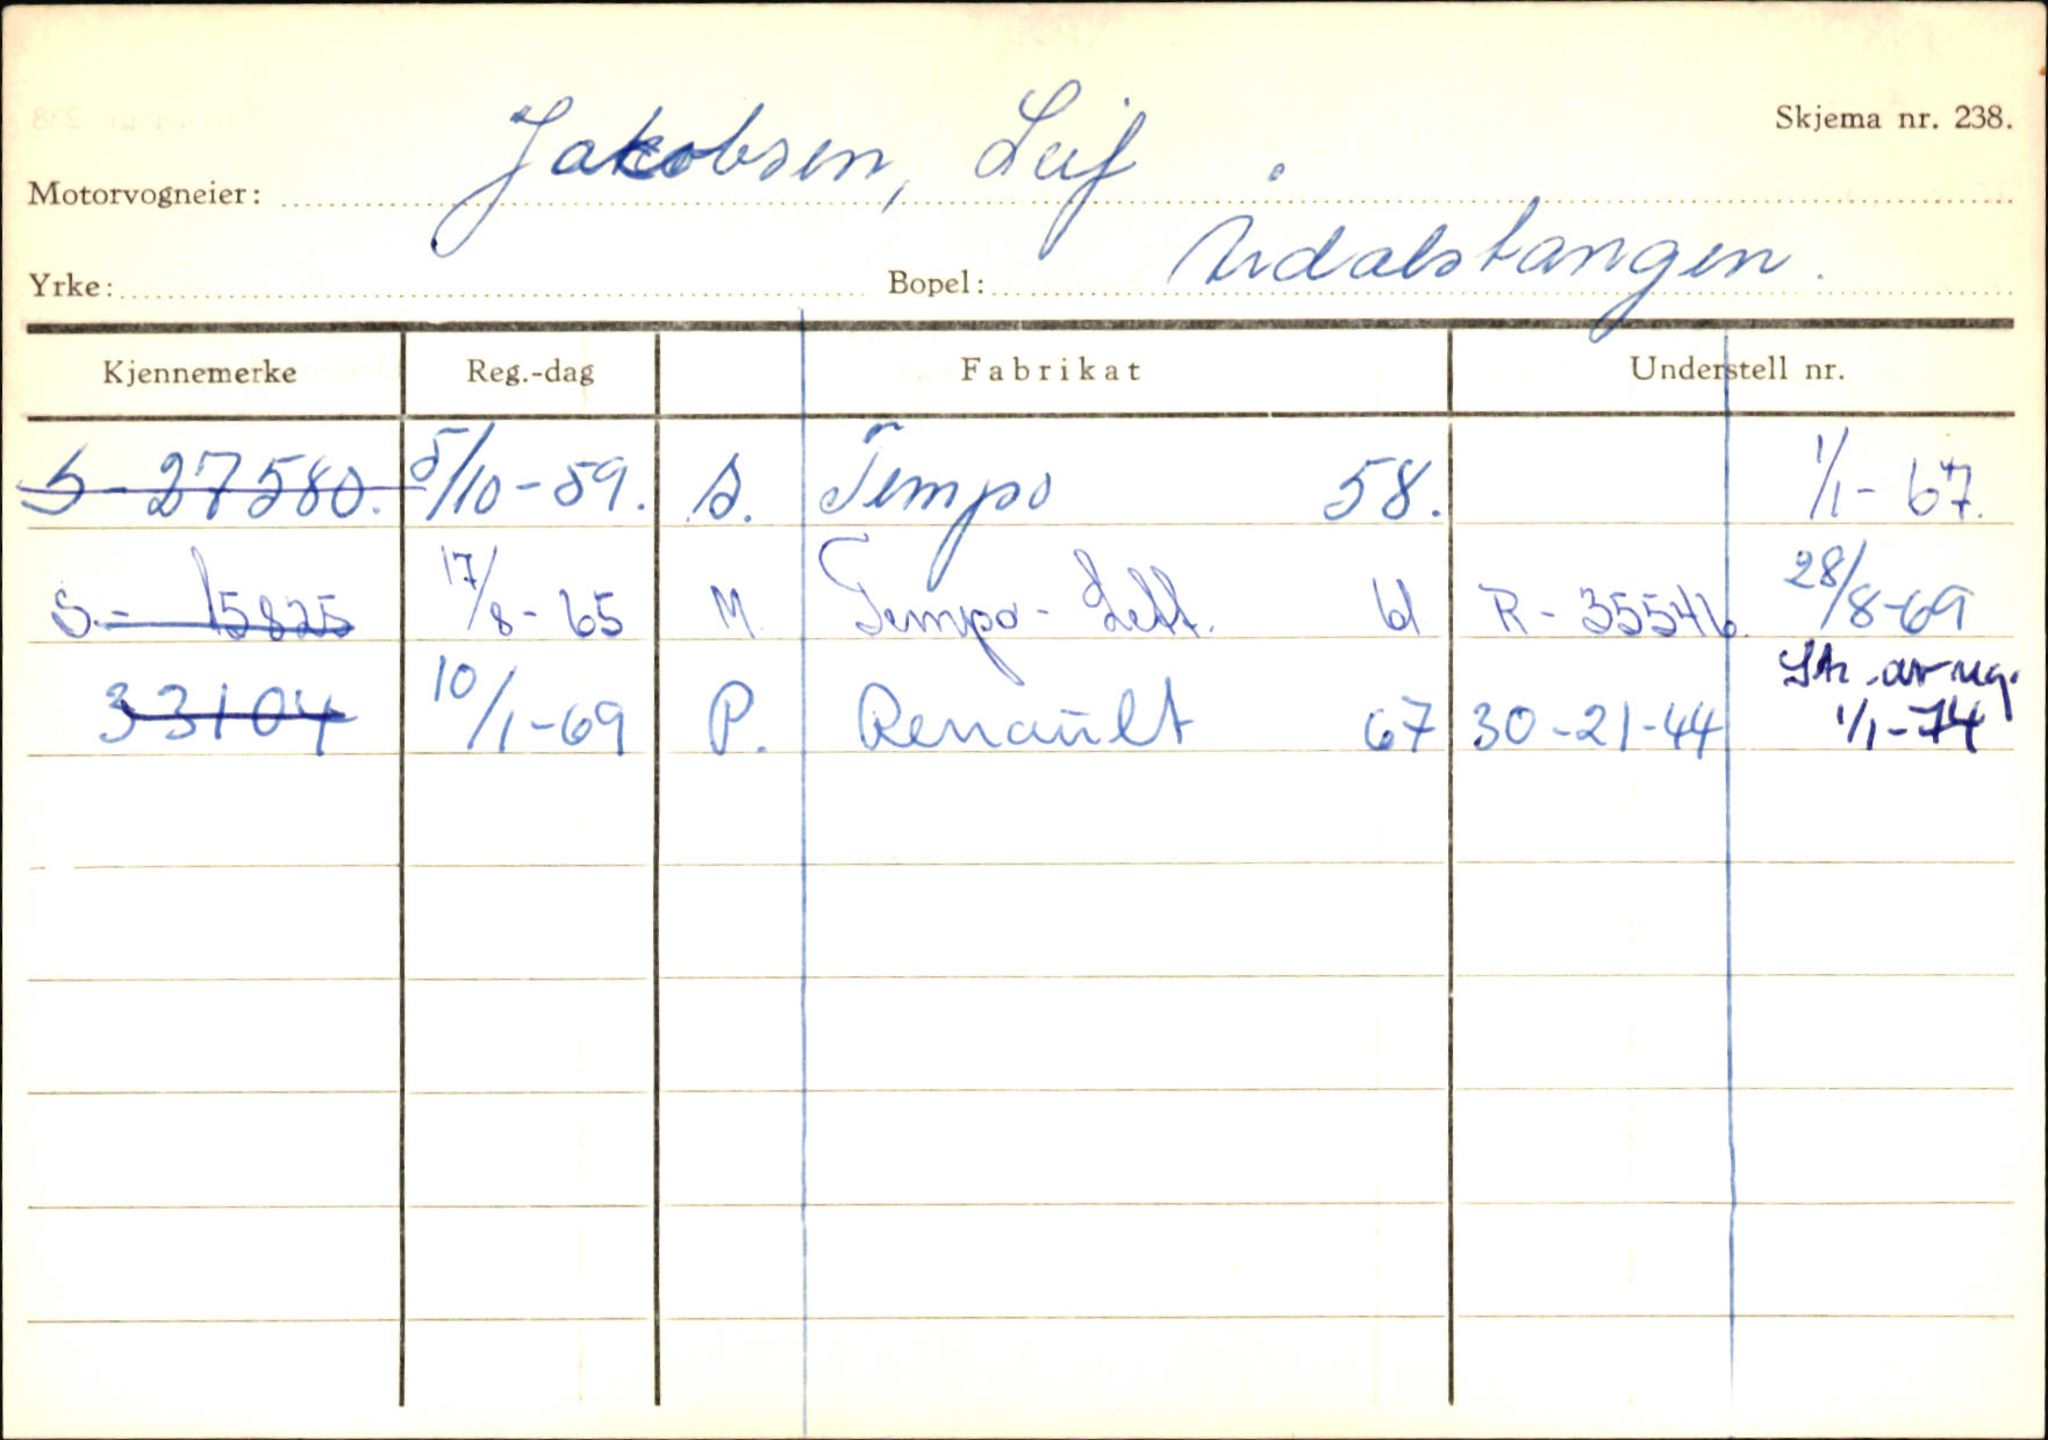 Skjema nr. 238.
Motorvogneier: Jakobsen, Leif
Yrke: Bopel: Årdalstangen.
Kjennemerke Reg.-dag Fabrikat Understell nr.
S-27580. 5/10-59. S. Tempo 58. 1/1-67.
S.- 15825 17/8-65 M Tempo-Lett. 61 R-35546. 28/8-69
Str. av reg.
33104 10/1-69 P. Renault 67 30-21-44 1/1-74